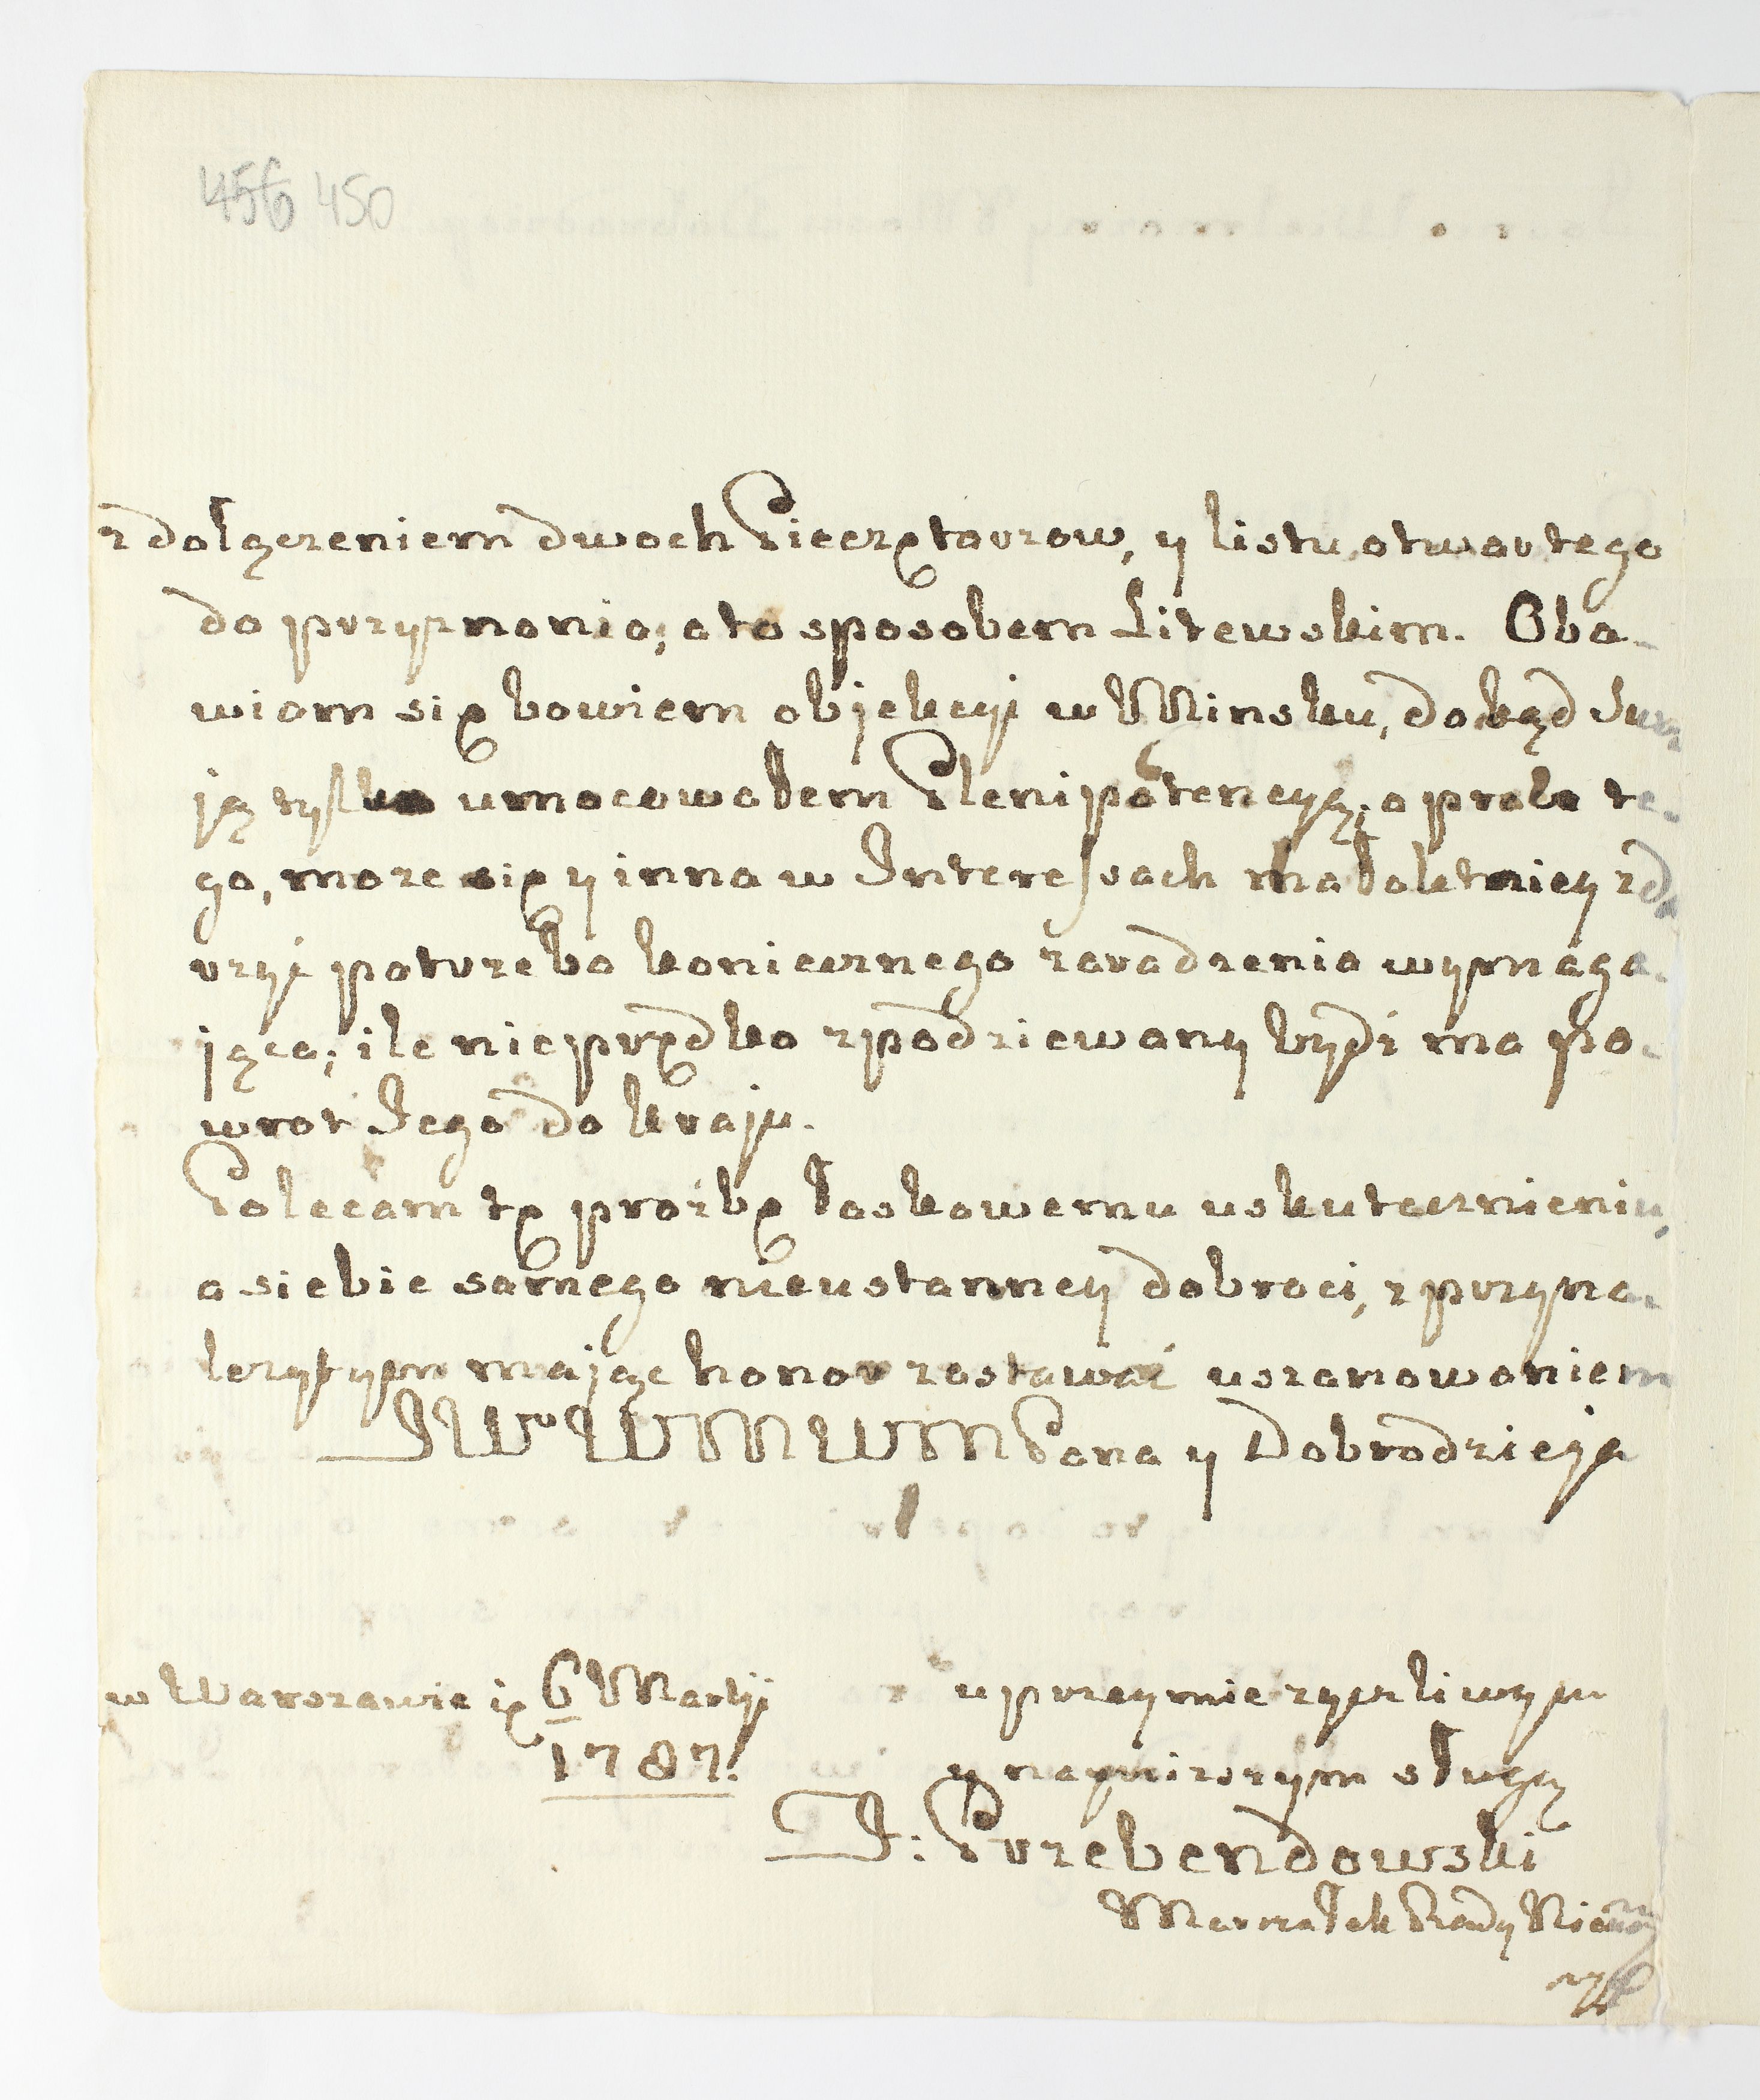 456 450
z dołączeniem dwoch Pieczętarzow, y listu otwartego
do przyznania; a to sposobem Litewskim. Oba-
wiam się bowiem objekcyi w Minsku, dokąd
ją tylko umocowałem Plenipotencyą; a prócz te-
go, może się y inna w Interessach małoletniey zda-
rzyć potrzeba koniecznego zaradzenia wymaga-
jąca; ile nieprędko zpodziewany bydź ma po-
wrot Jego do kraju.
Polecam tę proźbę łaskawemu uskutecznieniu,
a siebie samego nieustanney dobroci, z przyna-
leżytym mając honor zostawać uszanowaniem
JWWMWM Pana y Dobrodzieja
w Warszawie 6 Martij
1787.
uprzeymie życzliwym
y nayniższym sługą
J: Przebendowski
Marszałek Rady